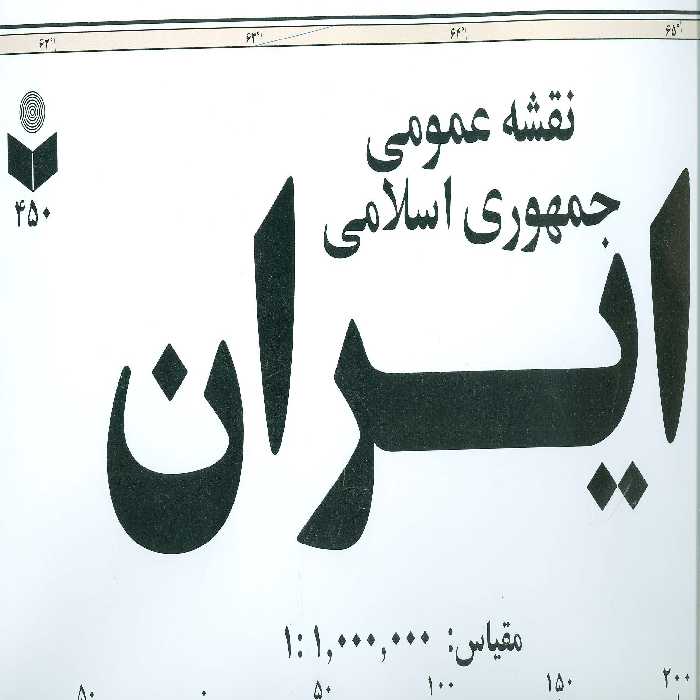 ۶۲° ۶۳° ۶۴° ۶۵°
نقشه عمومی
جمهوری اسلامی
ایران
۴۵۰
مقیاس: ۱:۱,۰۰۰,۰۰۰
۵۰ ۰ ۵۰ ۱۰۰ ۱۵۰ ۲۰۰